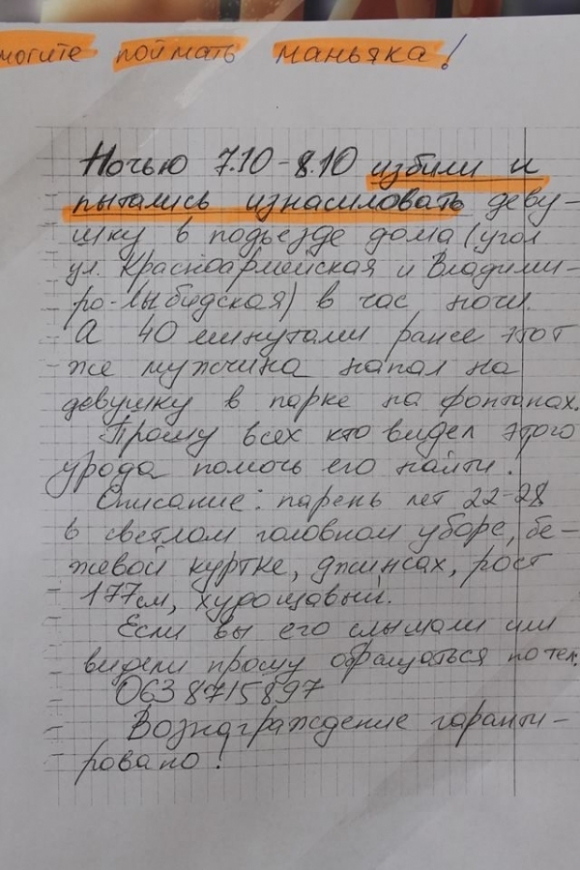 могите поймать маньяка!
Ночью 7.10-8.10 избили и
пытались изнасиловать деву-
шку в подъезде дома (угол
ул. Красноармейская и Владими-
ро-Лыбидская) в час ночи.
А 40 минутами ранее этот
же мужчина напал на
девушку в парке на фонтанах.
Прошу всех кто видел этого
урода помочь его найти.
Описание: парень лет 22-28
в светлом головном уборе, бе-
жевой куртке, джинсах, рост
177см, худощавый.
Если вы его слышали или
видели прошу обращаться по тел.
0638715897
Вознаграждение гаранти-
ровано!